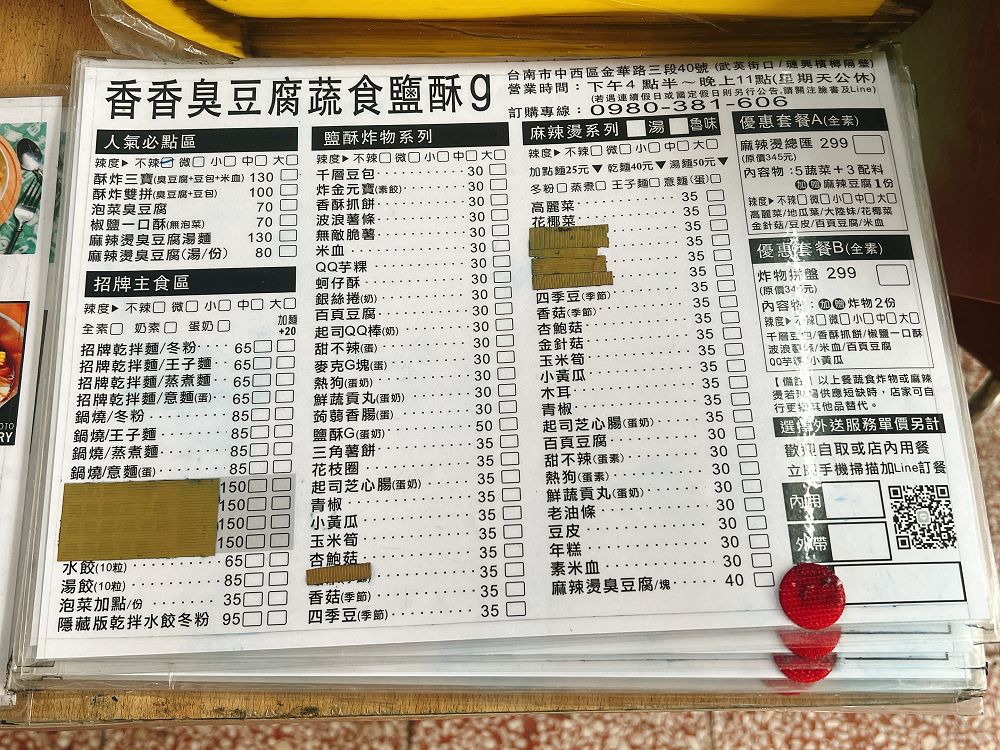 香香臭豆腐蔬食鹽酥g
台南市中西區金華路三段40號 (武英街口/璉興檳榔隔壁)
營業時間：下午4點半～晚上11點(星期天公休)
(若遇連續假日或國定假日則另行公告,請關注臉書及Line)
訂購專線：0980-381-606
人氣必點區
辣度▶ 不辣 微 小 中 大
酥炸三寶(臭豆腐+豆包+米血) 130
酥炸雙拼(臭豆腐+豆包) 100
泡菜臭豆腐 70
椒鹽一口酥(無泡菜) 70
麻辣燙臭豆腐湯麵 130
麻辣燙臭豆腐(湯/份) 80
招牌主食區
辣度▶ 不辣 微 小 中 大
全素 奶素 蛋奶 加麵+20
招牌乾拌麵/冬粉 65
招牌乾拌麵/王子麵 65
招牌乾拌麵/蒸煮麵 65
招牌乾拌麵/意麵(蛋) 65
鍋燒/冬粉 85
鍋燒/王子麵 85
鍋燒/蒸煮麵 85
鍋燒/意麵(蛋) 85
150
150
150
150
水餃(10粒) 65
湯餃(10粒) 85
泡菜加點/份 35
隱藏版乾拌水餃冬粉 95
鹽酥炸物系列
辣度▶ 不辣 微 小 中 大
千層豆包 30
炸金元寶(素餃) 30
香酥抓餅 30
波浪薯條 30
無敵脆薯 30
米血 30
QQ芋粿 30
蚵仔酥 30
銀絲捲(奶) 30
百頁豆腐 30
起司QQ棒(奶) 30
甜不辣(蛋) 30
麥克G塊(蛋) 30
熱狗(蛋奶) 30
鮮蔬貢丸(蛋奶) 30
蒟蒻香腸(蛋) 30
鹽酥G(蛋奶) 50
三角薯餅 30
花枝圈 35
起司芝心腸(蛋奶) 35
青椒 35
小黃瓜 35
玉米筍 35
杏鮑菇 35
35
香菇(季節) 35
四季豆(季節) 35
麻辣燙系列 湯 魯味
辣度▶ 不辣 微 小 中 大
加點麵25元▼ 乾麵40元▼ 湯麵50元▼
冬粉 蒸煮 王子麵 意麵(蛋)
高麗菜 35
花椰菜 35
35
35
35
四季豆(季節) 35
香菇(季節) 35
杏鮑菇 35
金針菇 35
玉米筍 35
小黃瓜 35
木耳 35
青椒 35
起司芝心腸(蛋奶) 35
百頁豆腐 30
甜不辣(蛋素) 30
熱狗(蛋素) 30
鮮蔬貢丸(蛋奶) 30
老油條 30
豆皮 30
年糕 30
素米血 30
麻辣燙臭豆腐/塊 40
優惠套餐A(全素)
麻辣燙總匯 299
(原價345元)
內容物：5蔬菜＋3配料
加贈 麻辣豆腐1份
辣度▶ 不辣 微 小 中 大
高麗菜/地瓜葉/大陸妹/花椰菜
金針菇/豆皮/百頁豆腐/米血
優惠套餐B(全素)
炸物拼盤 299
內容物：加贈 炸物2份
辣度▶ 不辣 微 小 中 大
千層豆包/香酥抓餅/椒鹽一口酥
波浪薯條/米血/百頁豆腐
QQ芋粿/小黃瓜
【備註】以上餐蔬食炸物或麻辣
燙若現場供應短缺時，店家可自
行更換其他品替代。
選擇外送服務單價另計
歡迎自取或店內用餐
立即手機掃描加Line訂餐
內用
外帶
RY